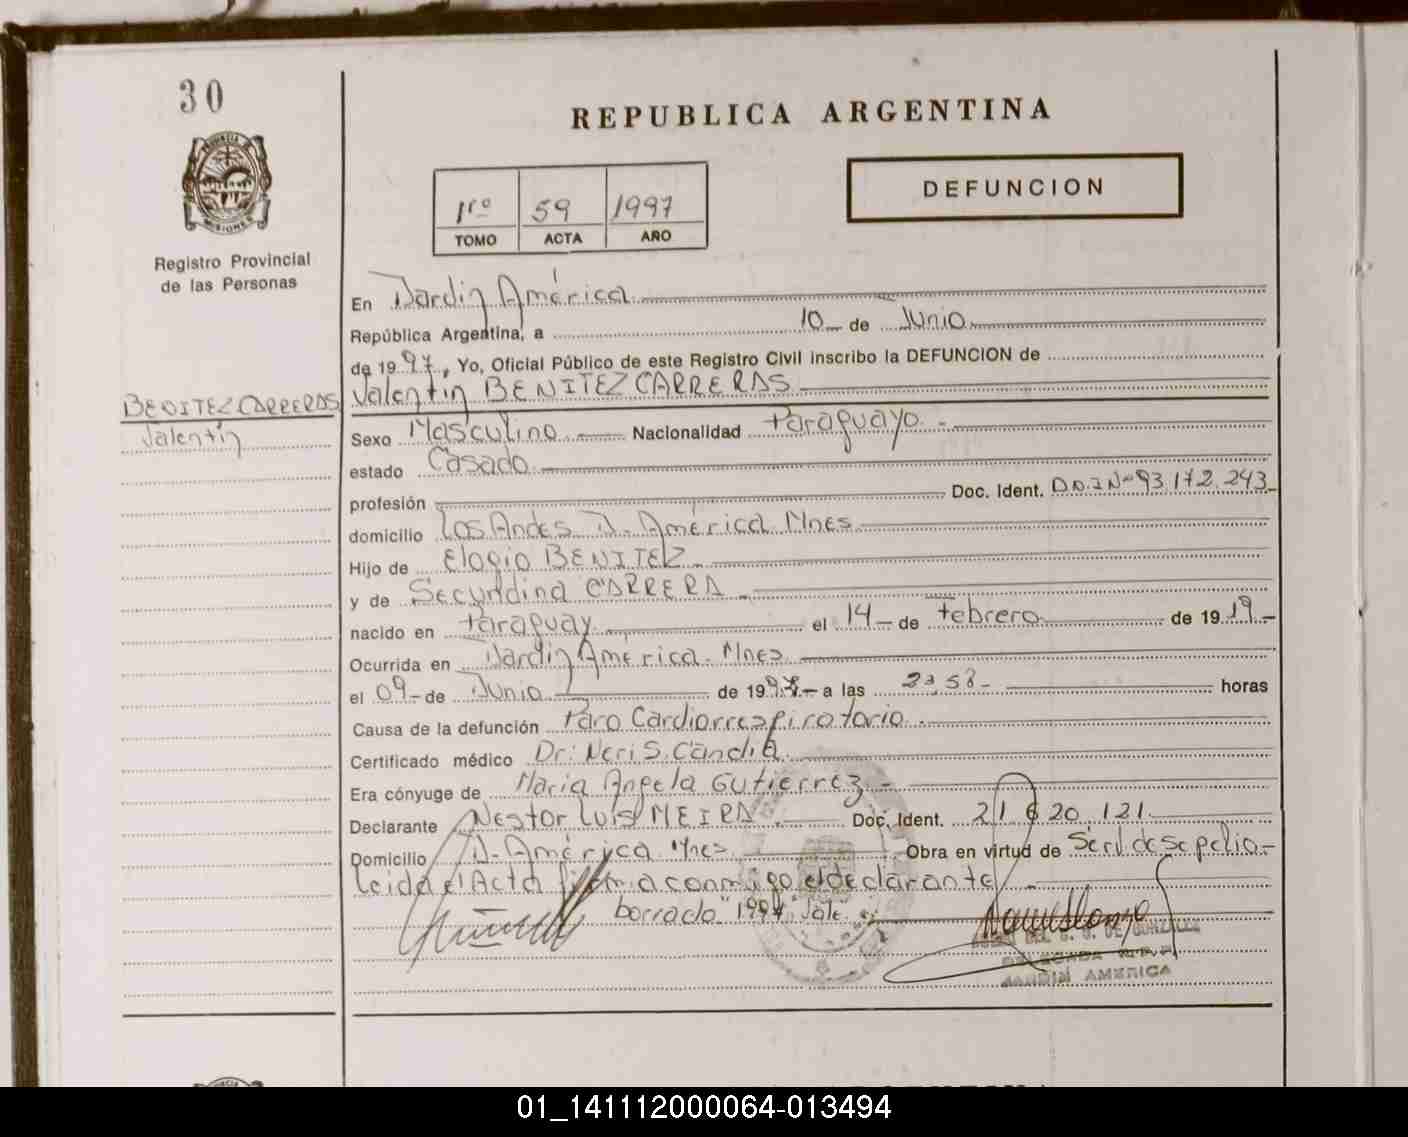 30
PROVINCIA DE
MISIONES
Registro Provincial
de las Personas
BENITEZ CARRERAS
Valentin
REPUBLICA ARGENTINA
1ro 59 1997
TOMO ACTA AÑO
DEFUNCION
En Jardin América
República Argentina, a 10 de Junio
de 1997, Yo, Oficial Público de este Registro Civil inscribo la DEFUNCION de
Valentin BENITEZ CARRERAS
Sexo Masculino Nacionalidad Paraguayo
estado Casado
profesión Doc. Ident. D.N.I Nº 93.172.243
domicilio Los Andes J. América Mnes
Hijo de Elogio BENITEZ
y de Secundina CARRERA
nacido en Paraguay el 14 de Febrero de 1919
Ocurrida en Jardin América. Mnes
el 09 de Junio de 1997 a las 23,58 horas
Causa de la defunción Paro Cardiorrespiratorio
Certificado médico Dr: Neri S. Candia
Era cónyuge de Maria Angela Gutierrez
Declarante Nestor Luis MEIRA Doc. Ident. 21 620 121
Domicilio J. América Mnes Obra en virtud de Serv. de Sepelio
Leida el Acta firma conmigo el declarante
borrado "1997" Vale.
DELEGADA R.P.P.
JARDIN AMERICA
01_141112000064-013494